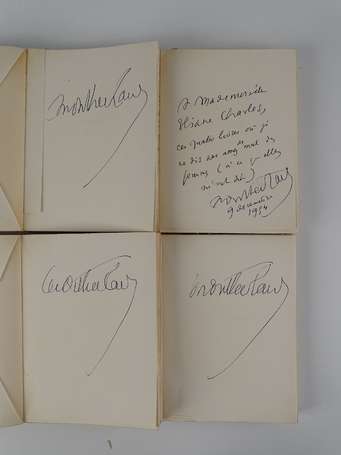 Montherlant
A Mademoiselle
Eliane Charles,
ces quatre livres où je
ne dis pas assez mal des
femmes (à ce qu'elles
m'ont dit.)
Montherlant
9 décembre
1954
Montherlant
Montherlant